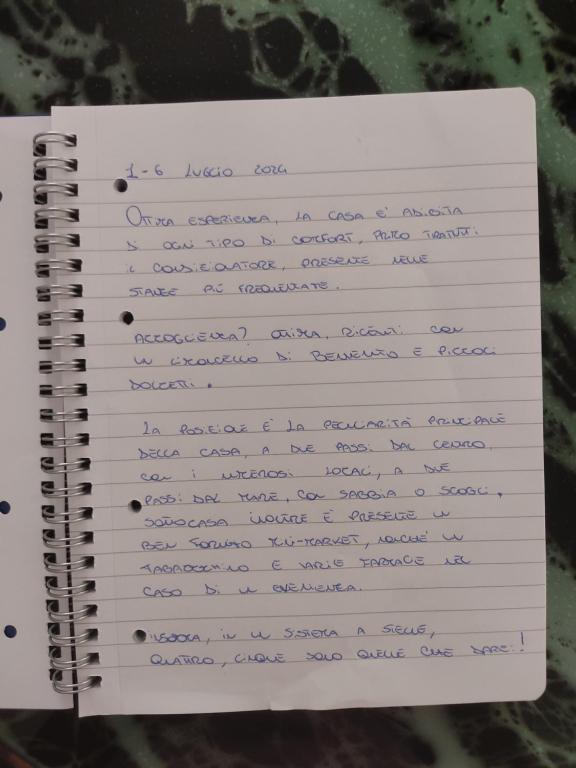 1-6 LUGLIO 2024
OTTIMA ESPERIENZA, LA CASA E' ADIBITA
DI OGNI TIPO DI COMFORT, PRIMO TRA TUTTI
IL CONDIZIONATORE, PRESENTE NELLE
STANZE PIÙ FREQUENTATE.
ACCOGLIENZA? OTTIMA, RICEVUTI CON
UN LIMONCELLO DI BENVENUTO E PICCOLI
DOLCETTI.
LA POSIZIONE È LA PECULIARITÀ PRINCIPALE
DELLA CASA, A DUE PASSI DAL CENTRO,
CON I NUMEROSI LOCALI, A DUE
PASSI DAL MARE, CON SABBIA O SCOGLI,
SOTTOCASA INOLTRE È PRESENTE UN
BEN FORNITO MINI-MARKET, NONCHÉ UN
TABACCHINO E VARIE FARMACIE NEL
CASO DI UN EVENIENZA.
INSOMMA, IN UN SISTEMA A STELLE,
QUATTRO, CINQUE SONO QUELLE CHE DAREI!